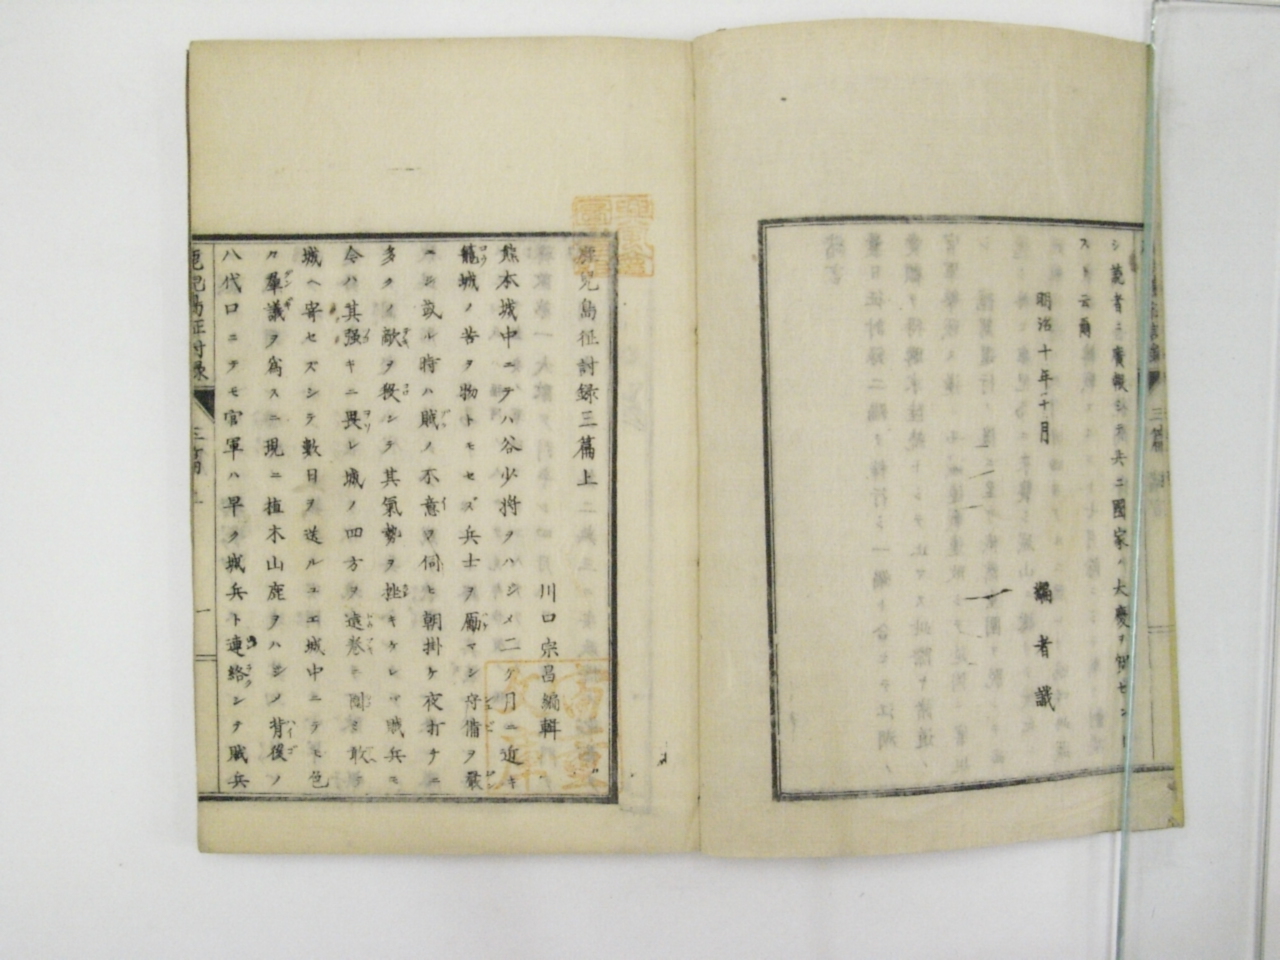 シ蒙者ニ實報シ共ニ國家ノ大慶ヲ知セシト
スト云爾
明治十年十月
編者識
鹿兒島征討録三篇上
川口宗昌編輯
熊本城中ニテハ谷少將ヲハジメ二ケ月ニ近キ
籠城ノ苦ヲ物トモセズ兵士ヲ勵マシ守備ヲ嚴
ニシ或ル時ハ賊ノ不意ヲ伺ヒ朝掛ケ夜打チニ
多クノ敵ヲ殺シテ其氣勢ヲ挫キケレバ賊兵モ
今ハ其强キニ畏レ城ノ四方ヲ遠巻キ
城ヘ寄セズシテ數日ヲ送ルユエ城中ニテモ色
々羣議ヲ爲スニ現ニ植木山鹿ヲハジメ背後ノ
八代口ニテモ官軍ハ早ク城兵ト連絡シテ賊兵
鹿兒島征討録 三篇上 一